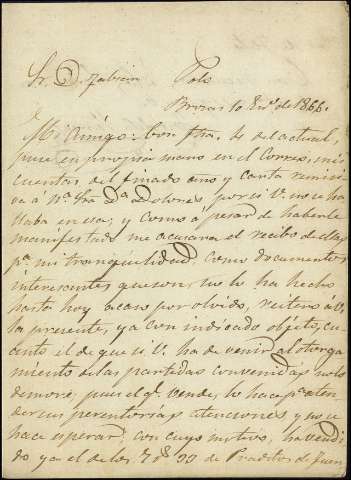 Sr. D. Fabian Polo
Brozas 10 En.º de 1866.
Mi amigo: Con fha. 4 del actual,
puse en propia mano en el Correo, mis
cuentas del finado año y carta remisi
va a N.ª Sra D.ª Dolores, por si V. no se ha
llaba en esa; y como a pesar de haberle
manifestado me acusara el recibo de ellas
p.ª mi tranquilidad, como documentos
interesantes que son, no lo ha hecho
hasta hoy acaso por olvido, reitero á V.
la presente, ya con indicado objeto, cu
anto el de que si V. ha de venir al otorga
miento de las partidas convenidas no lo
demore, pues el q.e vende, lo hace p.ª aten
der sus perentorias atenciones y no se
hace esperar, con cuyo motivo, ha vendi
do ya el de los de Praditos de Juan